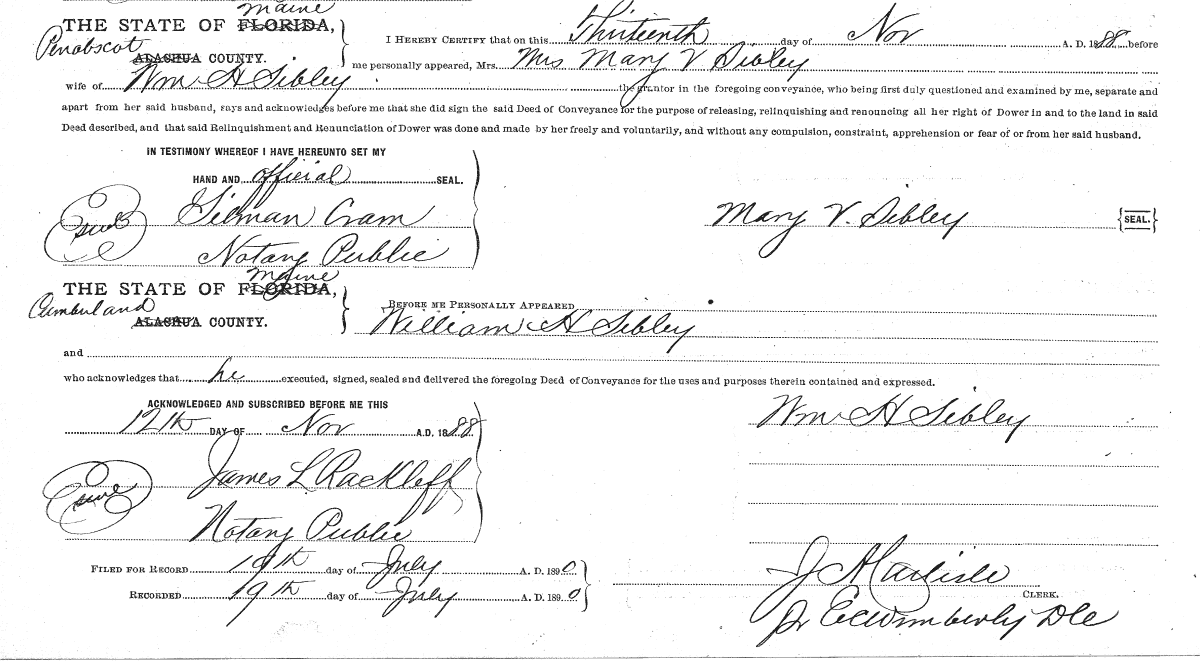 Maine
THE STATE OF FLORIDA,
Penobscot
ALACHUA COUNTY.
I HEREBY CERTIFY that on this Thirteenth day of Nov A. D. 1888 before
me personally appeared, Mrs. Mrs Mary V Sibley
wife of Wm H Sibley the grantor in the foregoing conveyance, who being first duly questioned and examined by me, separate and
apart from her said husband, says and acknowledges before me that she did sign the said Deed of Conveyance for the purpose of releasing, relinquishing and renouncing all her right of Dower in and to the land in said
Deed described, and that said Relinquishment and Renunciation of Dower was done and made by her freely and voluntarily, and without any compulsion, constraint, apprehension or fear of or from her said husband.
IN TESTIMONY WHEREOF I HAVE HEREUNTO SET MY
HAND AND official SEAL.
Seal
Gilman Cram
Mary V. Sibley
SEAL.
Notary Public
Maine
THE STATE OF FLORIDA,
Cumberland
ALACHUA COUNTY.
BEFORE ME PERSONALLY APPEARED
William H Sibley
and
who acknowledges that he executed, signed, sealed and delivered the foregoing Deed of Conveyance for the uses and purposes therein contained and expressed.
ACKNOWLEDGED AND SUBSCRIBED BEFORE ME THIS
12th DAY OF Nov A.D. 1888
Wm H Sibley
Seal
James L Rackleff
Notary Public
FILED FOR RECORD 19th day of July A. D. 1890
RECORDED 19th day of July A. D. 1890
J A Carlisle
CLERK.
pr E C Wimberly DC